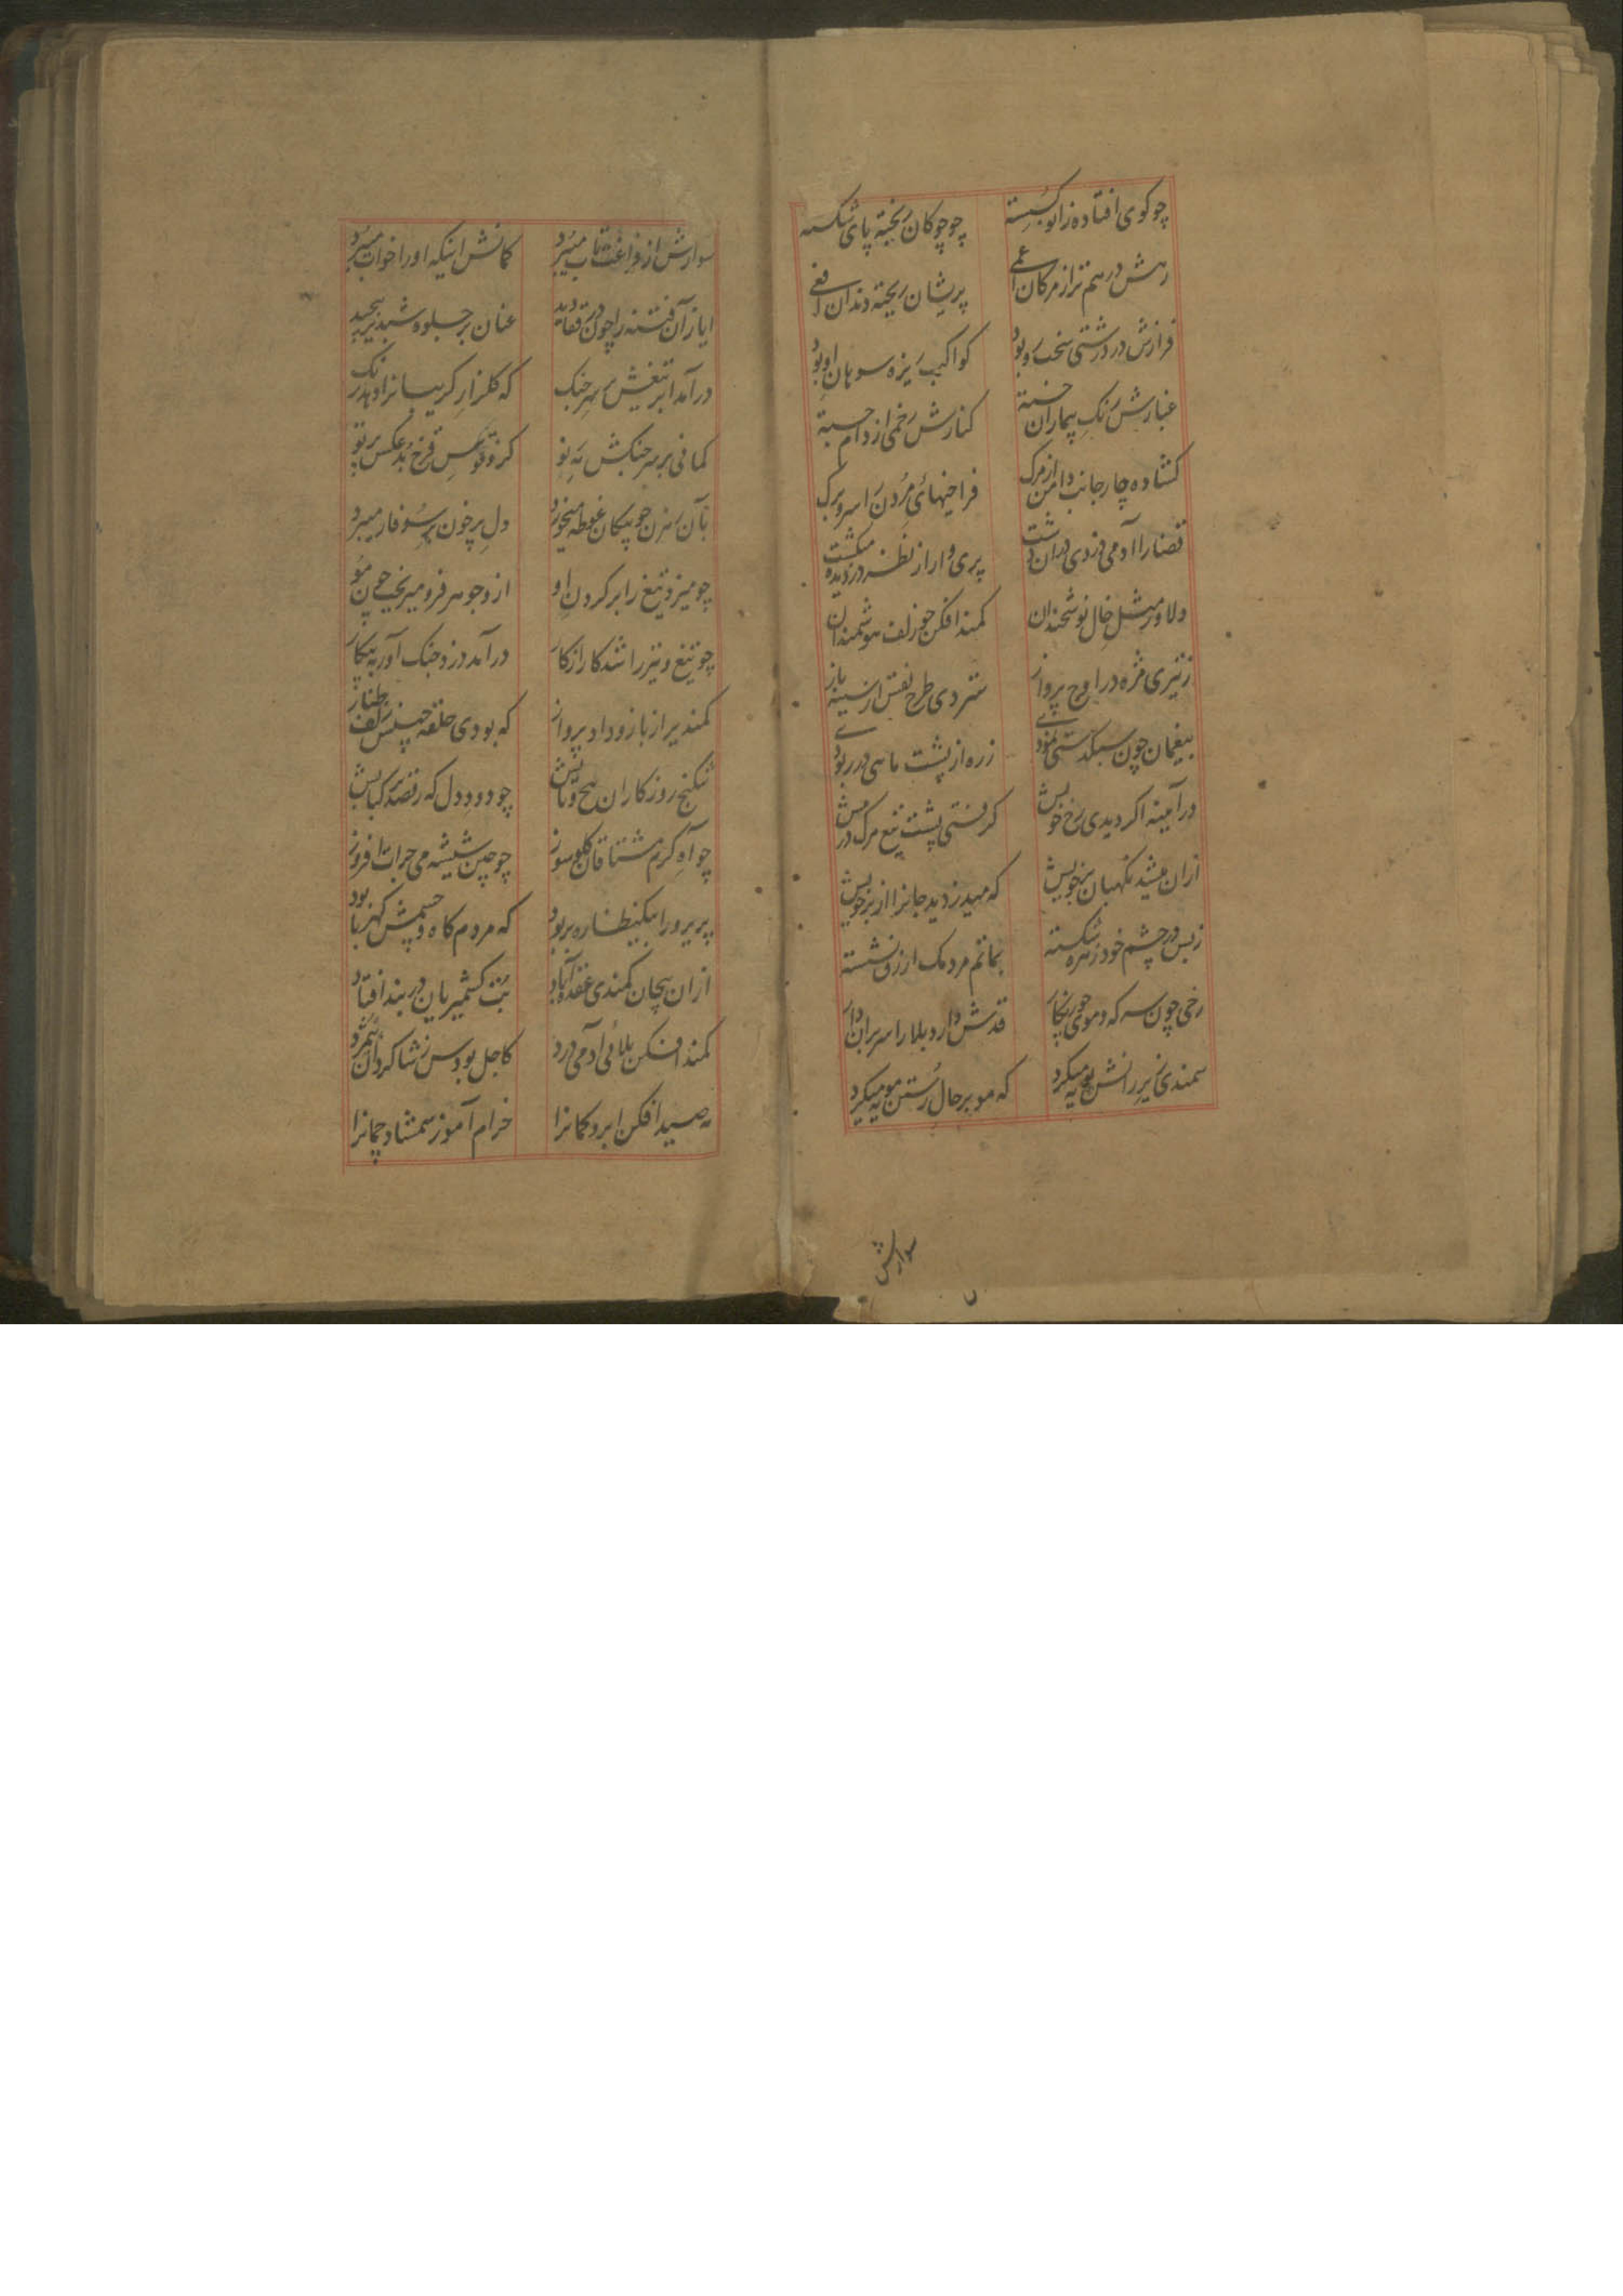 چو کوی افتاده زانو کسسته چو چوکان ریخته پای شکسته
رهش درهم تر از مرکان اعمی پریشان ریخته دندان افعی
فرازش در درشتی سخت رو بود کواکب ریزه سوهان او بود
غبارش رنک بیماران خسته کنارش زخمی از دام جسته
کشاده چار جانب دامن از مرک فراخیهای مردن را سر و برک
قضا را آدمی دزدی در آن دشت پری وار از نظر دزدیده میکشت
دلاور مثل خال نوشخندان کمند افکن چو زلف هوشمندان
ز تیزی مژه در اوج پرواز ستردی طرح نقش از سینه باز
بیغمان چون سبکدستی نمودی زره از پشت ماهی در ربودی
در آیینه اکر دیدی رخ خویش کرفتی پشت تیغ مرک در پیش
از آن میشد نکهبان بر خویش که میدزدید جانرا از بر خویش
ز بس در چشم خود زهره شکسته بماتم مردمک ازرق نشسته
رخی چون سه که و موی چو پیکار قدش دار و بلا را سر بران دار
سمندی زیر رانش پویه میکرد که مو بر حال رستن مویه میکرد
سوارش
سوارش از فراغت تاب میبرد کمانش اینکه او را خواب میبرد
ایاز آن فتنه را چون در قفا دید عنان بر جلوه شبدیز پیچید
در آمد ابر تیغش بر سر جنک که کلزار کریبانرا دهد رنک
کمانی بر سر جنکش به نو کزو قوس قزح بد عکس پرتو
بآن سر زن چو پیکان غوطه میخورد دل پر خون بر سوفار میبرد
چو میزد تیغ را بر کردن او ازو جوهر فرو میریخت چون مو
چو تیغ و تیر را شد کار از کار در آمد دزد جنک آور به پیکار
کمندیرا ز بازو داد پرواز که بودی حلقه چینش زلف طناز
شکنج روزکاران پیچ و تابش چو دود دل که رقصد بر کبابش
چو آه کرم مشتاقان کلو سوز چو چین شیشه می جرات افروز
پریرو را بیکنظاره بربود که مردم کاه و چشمش کهربا بود
از آن پیچان کمندی عقده آباد بت کشمیریان در بند افتاد
کمند افکن بلائی آدمی درد کاجل بودس ز شاکردان شمرد
به صید افکن ابرو کمانرا خرام آموز شمشاد چمانرا